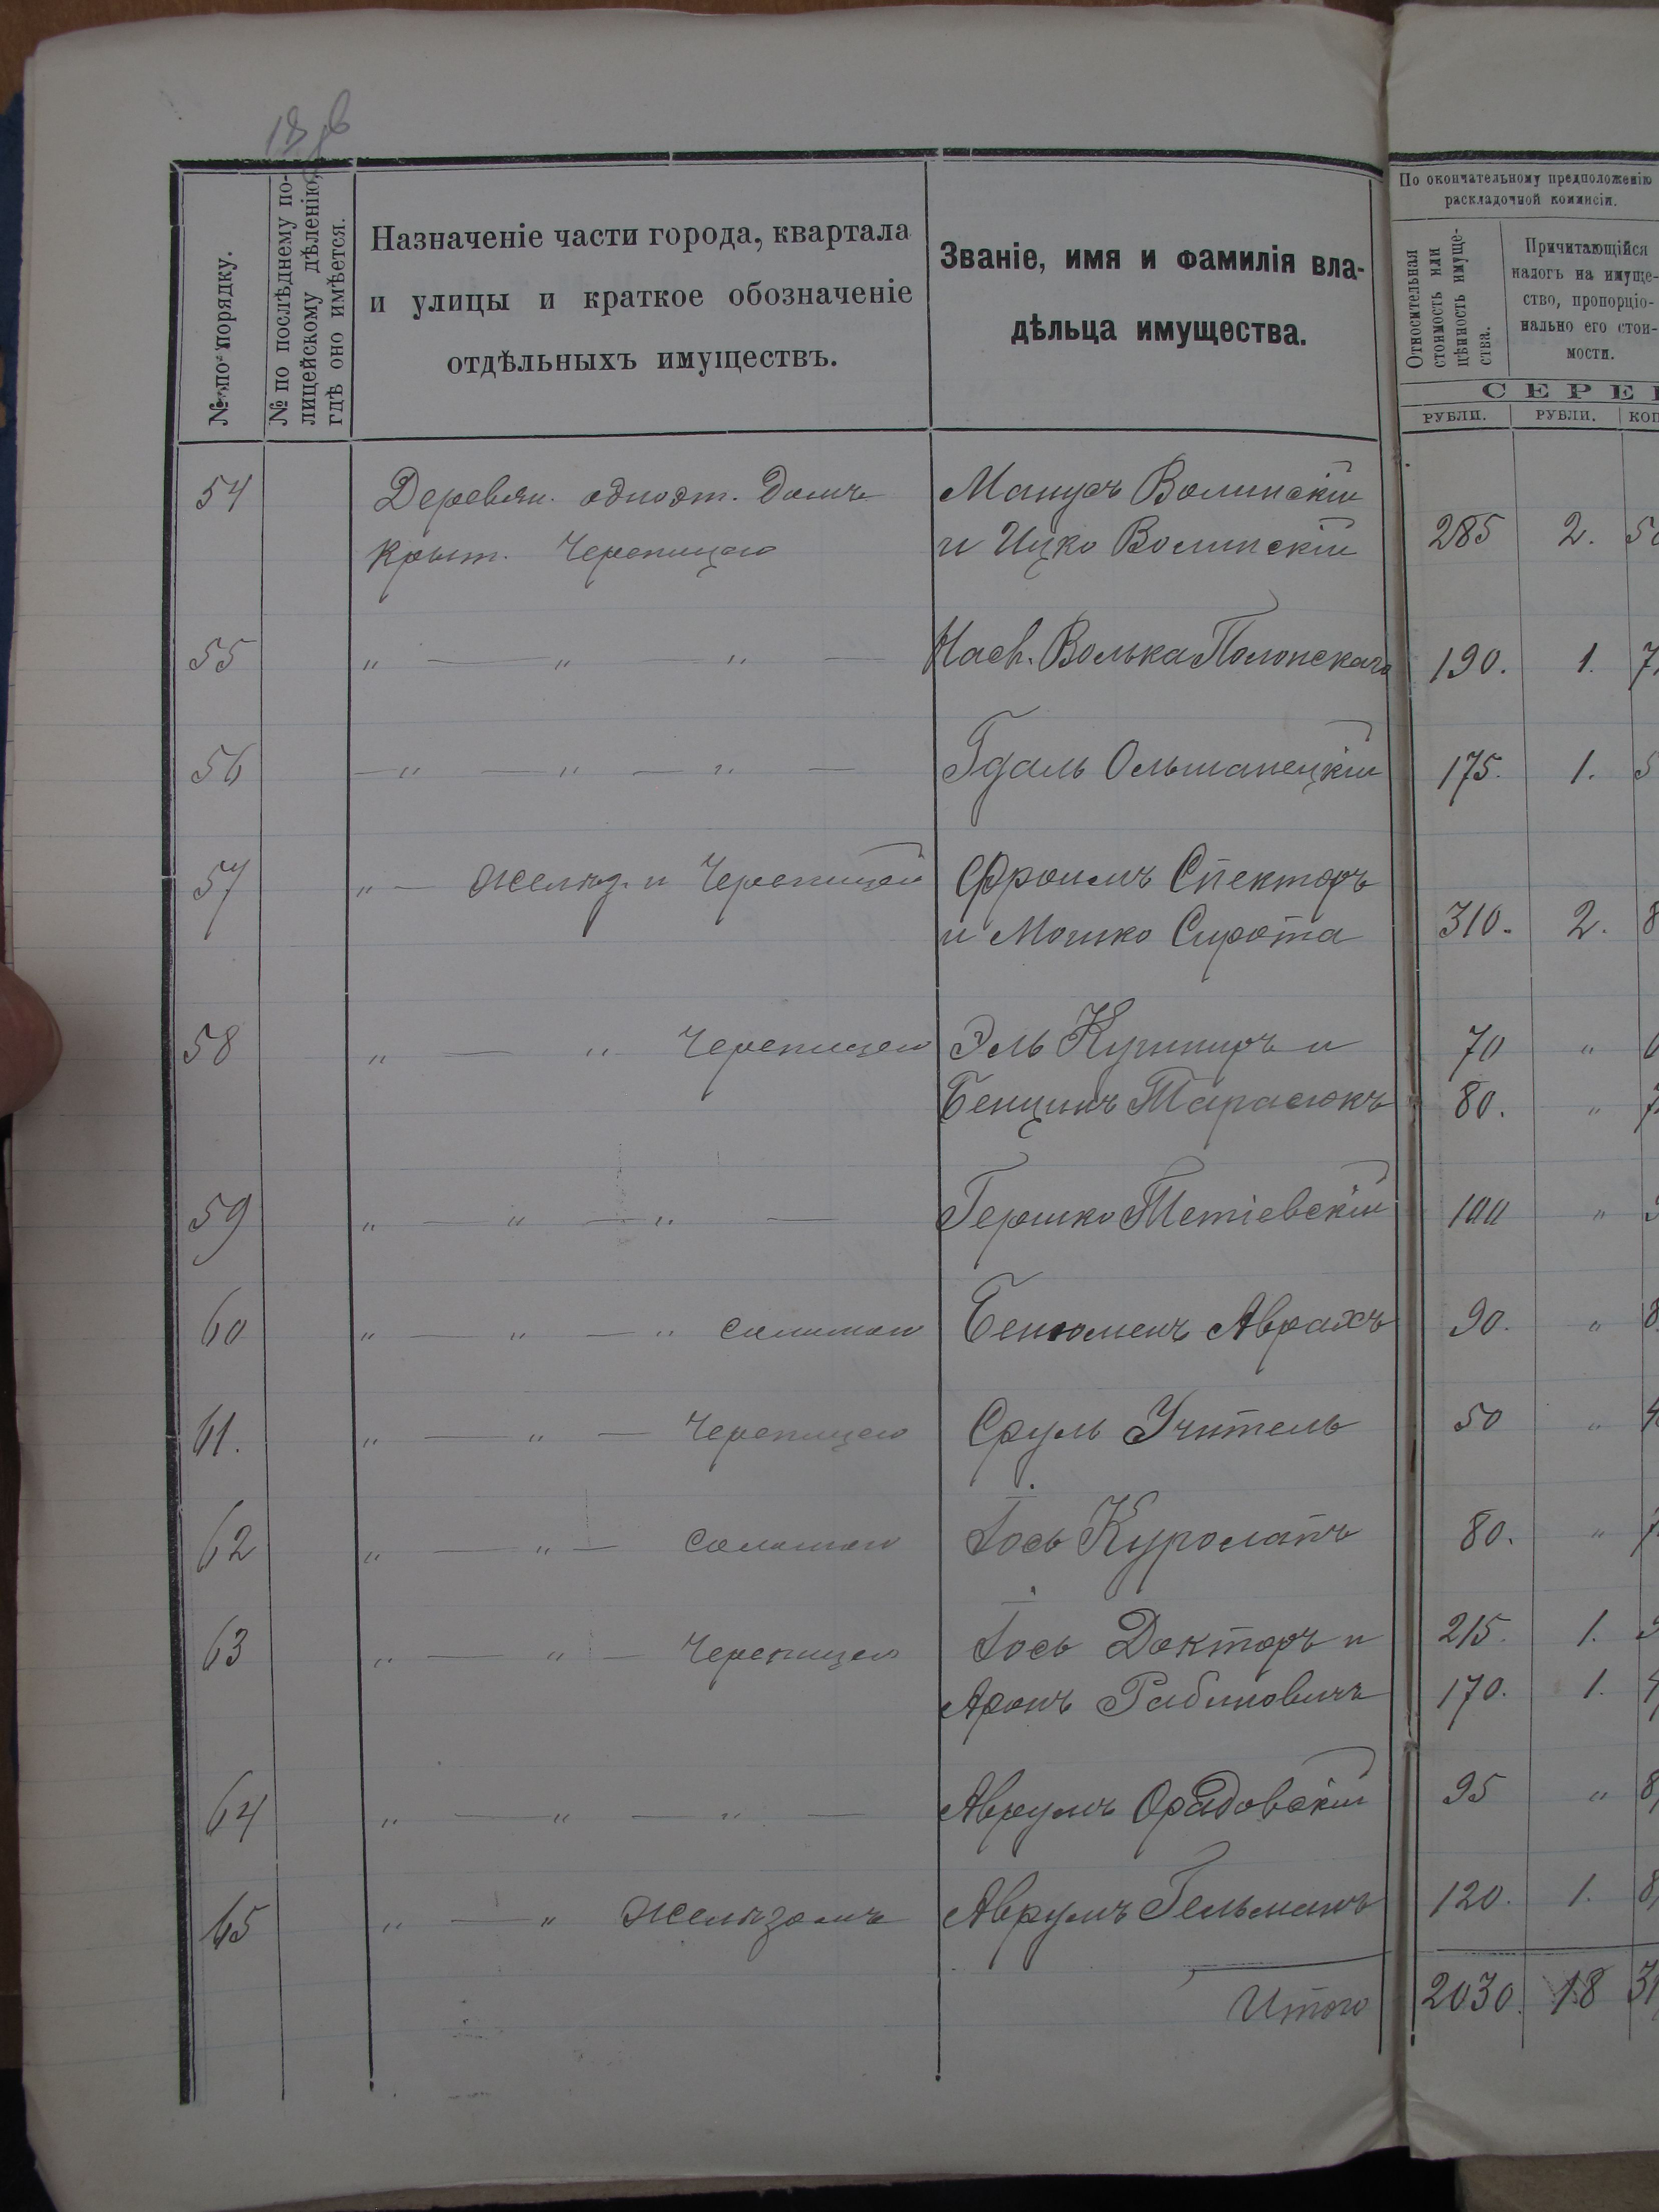 18 об
№ по порядку.
№ по послѣднему по-
лицейскому дѣленію,
гдѣ оно имѣется.
Назначеніе части города, квартала
и улицы и краткое обозначеніе
отдѣльныхъ имуществъ.
Званіе, имя и фамилія вла-
дѣльца имущества.
По окончательному предположенію
раскладочной коммисіи.
Относительная
стоимость или
цѣнность имуще-
ства.
Причитающійся
налогъ на имуще-
ство, пропорціо-
нально его стои-
мости.
СЕРЕ
РУБЛИ. РУБЛИ. КОП
54 Деревян. одноэт. домъ Манусъ Волинскій
Крыт. Черепицею и Ицко Волинскій 285 2.
55 " — " " — Насл. Волька Полонскаго 190. 1.
56 — " — " — " — Гдаль Ольшанецкій 175. 1.
57 " — желѣз. и Черепицей Фроимъ Спекторъ
и Мошко Сирота 310. 2. 8
58 " — " Черепицею Эль Кушниръ и 70 "
Бенционъ Тарасюкъ 80. "
59 " — " — " — Гершко Тетіевскій 100 "
60 " — " — " соломою Бенюменъ Аврахъ 90. " 8
61. " — " — Черепицею Сруль Учитель 50 " 4
62 " — " — соломою Іось Куролапъ 80. "
63 " — " — Черепицею Іось Докторъ и 215. 1.
Аронъ Рабиновичъ 170. 1.
64 " — " — " — Аврумъ Орадовскій 95 " 8
65 " — " желѣзомъ Аврумъ Гельманъ 120. 1. 8
Итого 2030. 18 31